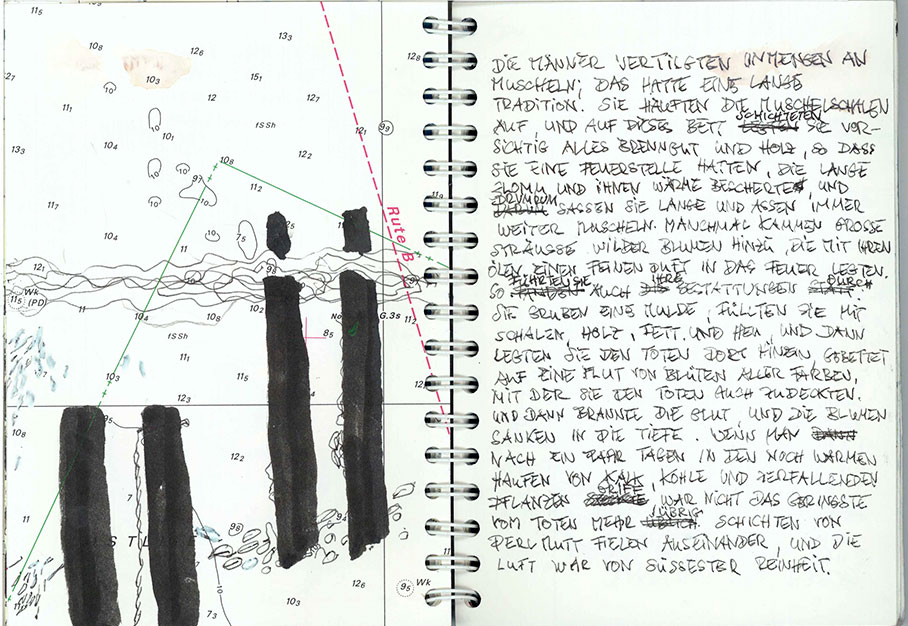 11₅
13₃
10₈
12₆
12₈
10₃
15₁
12₇
10
11₁
12
12₇
10
10₁
fSSh
12₁
9₉
13₃
10₄
12₂
10₈
10
10
9₇
11₂
11₇
10
10
11₃
10₄
10
7₅
Rute B
11
12₁
9₈
Wk
(PD)
11₅
11
10₄
10₂
G.3s
8₅
11₂
fSSh
11₁
11₅
10₃
12₃
10₈
9₅
12₂
7
11
9₈
9₄
S T L
12₆
9₅
Wk
10₃
7₃
10
DIE MÄNNER VERTILGTEN UNMENGEN AN
MUSCHELN; DAS HATTE EINE LANGE
TRADITION. SIE HÄUFTEN DIE MUSCHELSCHALEN
AUF, UND AUF DIESES BETT SCHICHTETEN SIE VOR-
SICHTIG ALLES BRENNGUT UND HOLZ, SO DASS
SIE EINE FEUERSTELLE HATTEN, DIE LANGE
GLOMM UND IHNEN WÄRME BESCHERTE, UND
DRUMRUM SASSEN SIE LANGE UND ASSEN IMMER
WEITER MUSCHELN. MANCHMAL KAMEN GROSSE
STRÄUSSE WILDER BLUMEN HINZU, DIE MIT IHREN
ÖLEN EINEN FEINEN DUFT IN DAS FEUER LEGTEN.
SO FÜHRTEN SIE AUCH IHRE BESTATTUNGEN DURCH.
SIE GRUBEN EINE MULDE, FÜLLTEN SIE MIT
SCHALEN, HOLZ, FETT UND HEU, UND DANN
LEGTEN SIE DEN TOTEN DORT HINEIN, GEBETTET
AUF EINE FLUT VON BLÜTEN ALLER FARBEN,
MIT DER SIE DEN TOTEN AUCH ZUDECKTEN.
UND DANN BRANNTE DIE GLUT, UND DIE BLUMEN
SANKEN IN DIE TIEFE. WENN MAN
NACH EIN PAAR TAGEN IN DEN NOCH WARMEN
HAUFEN VON KALK, KOHLE UND ZERFALLENDEN
PFLANZEN GRIFF, WAR NICHT DAS GERINGSTE
VOM TOTEN MEHR ÜBRIG. SCHICHTEN VON
PERLMUTT FIELEN AUSEINANDER, UND DIE
LUFT WAR VON SÜSSESTER REINHEIT.